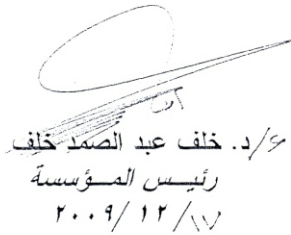 ع/د. خلف عبد الصمد خلف
رئيس المؤسسة
٢٠٠٩/ ١٢ /١٧